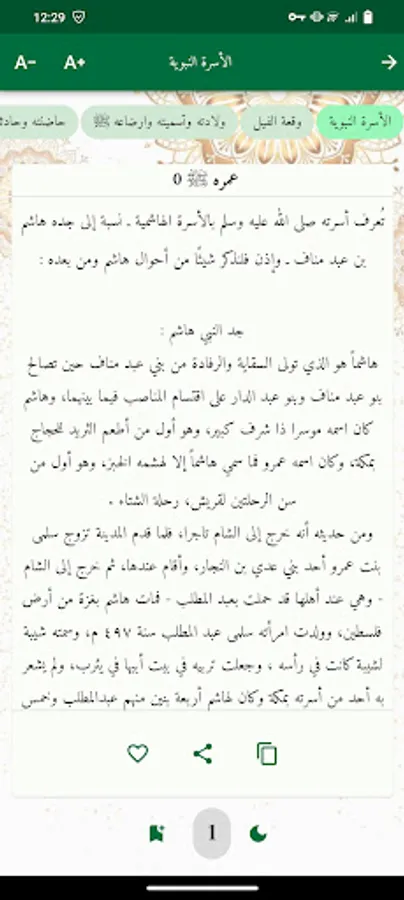 12:29
A-
A+
الأسرة النبوية
الأسرة النبوية
وقعة الفيل
ولادته وتسميته وارضاعه ﷺ
حاضنته وحادثة
عمره ﷺ 0
تُعرف أسرته صلى الله عليه وسلم بالأسرة الهاشمية ـ نسبة إلى جده هاشم
بن عبد مناف ـ وإذن فلنذكر شيئًا من أحوال هاشم ومن بعده :
جد النبي هاشم :
هاشماً هو الذي تولى السقاية والرفادة من بني عبد مناف حين تصالح
بنو عبد مناف وبنو عبد الدار على اقتسام المناصب فيما بينهما، وهاشم
كان اسمه موسرا ذا شرف كبير، وهو أول من أطعم الثريد للحجاج
بمكة، وكان اسمه عمرو فما سمي هاشماً إلا لهشمه الخبز، وهو أول من
سن الرحلتين لقريش، رحلة الشتاء .
ومن حديثه أنه خرج إلى الشام تاجرا، فلما قدم المدينة تزوج سلمى
بنت عمرو أحد بني عدي بن النجار، وأقام عندها، ثم خرج إلى الشام
- وهي عند أهلها قد حملت بعبد المطلب - فمات هاشم بغزة من أرض
فلسطين، وولدت امرأته سلمى عبد المطلب سنة ٤٩٧ م، وسمته شيبة
لشيبة كانت في رأسه ، وجعلت تربيه في بيت أبيها في يثرب، ولم يشعر
به أحد من أسرته بمكة وكان لهاشم أربعة بنين منهم عبدالمطلب وخمس
1